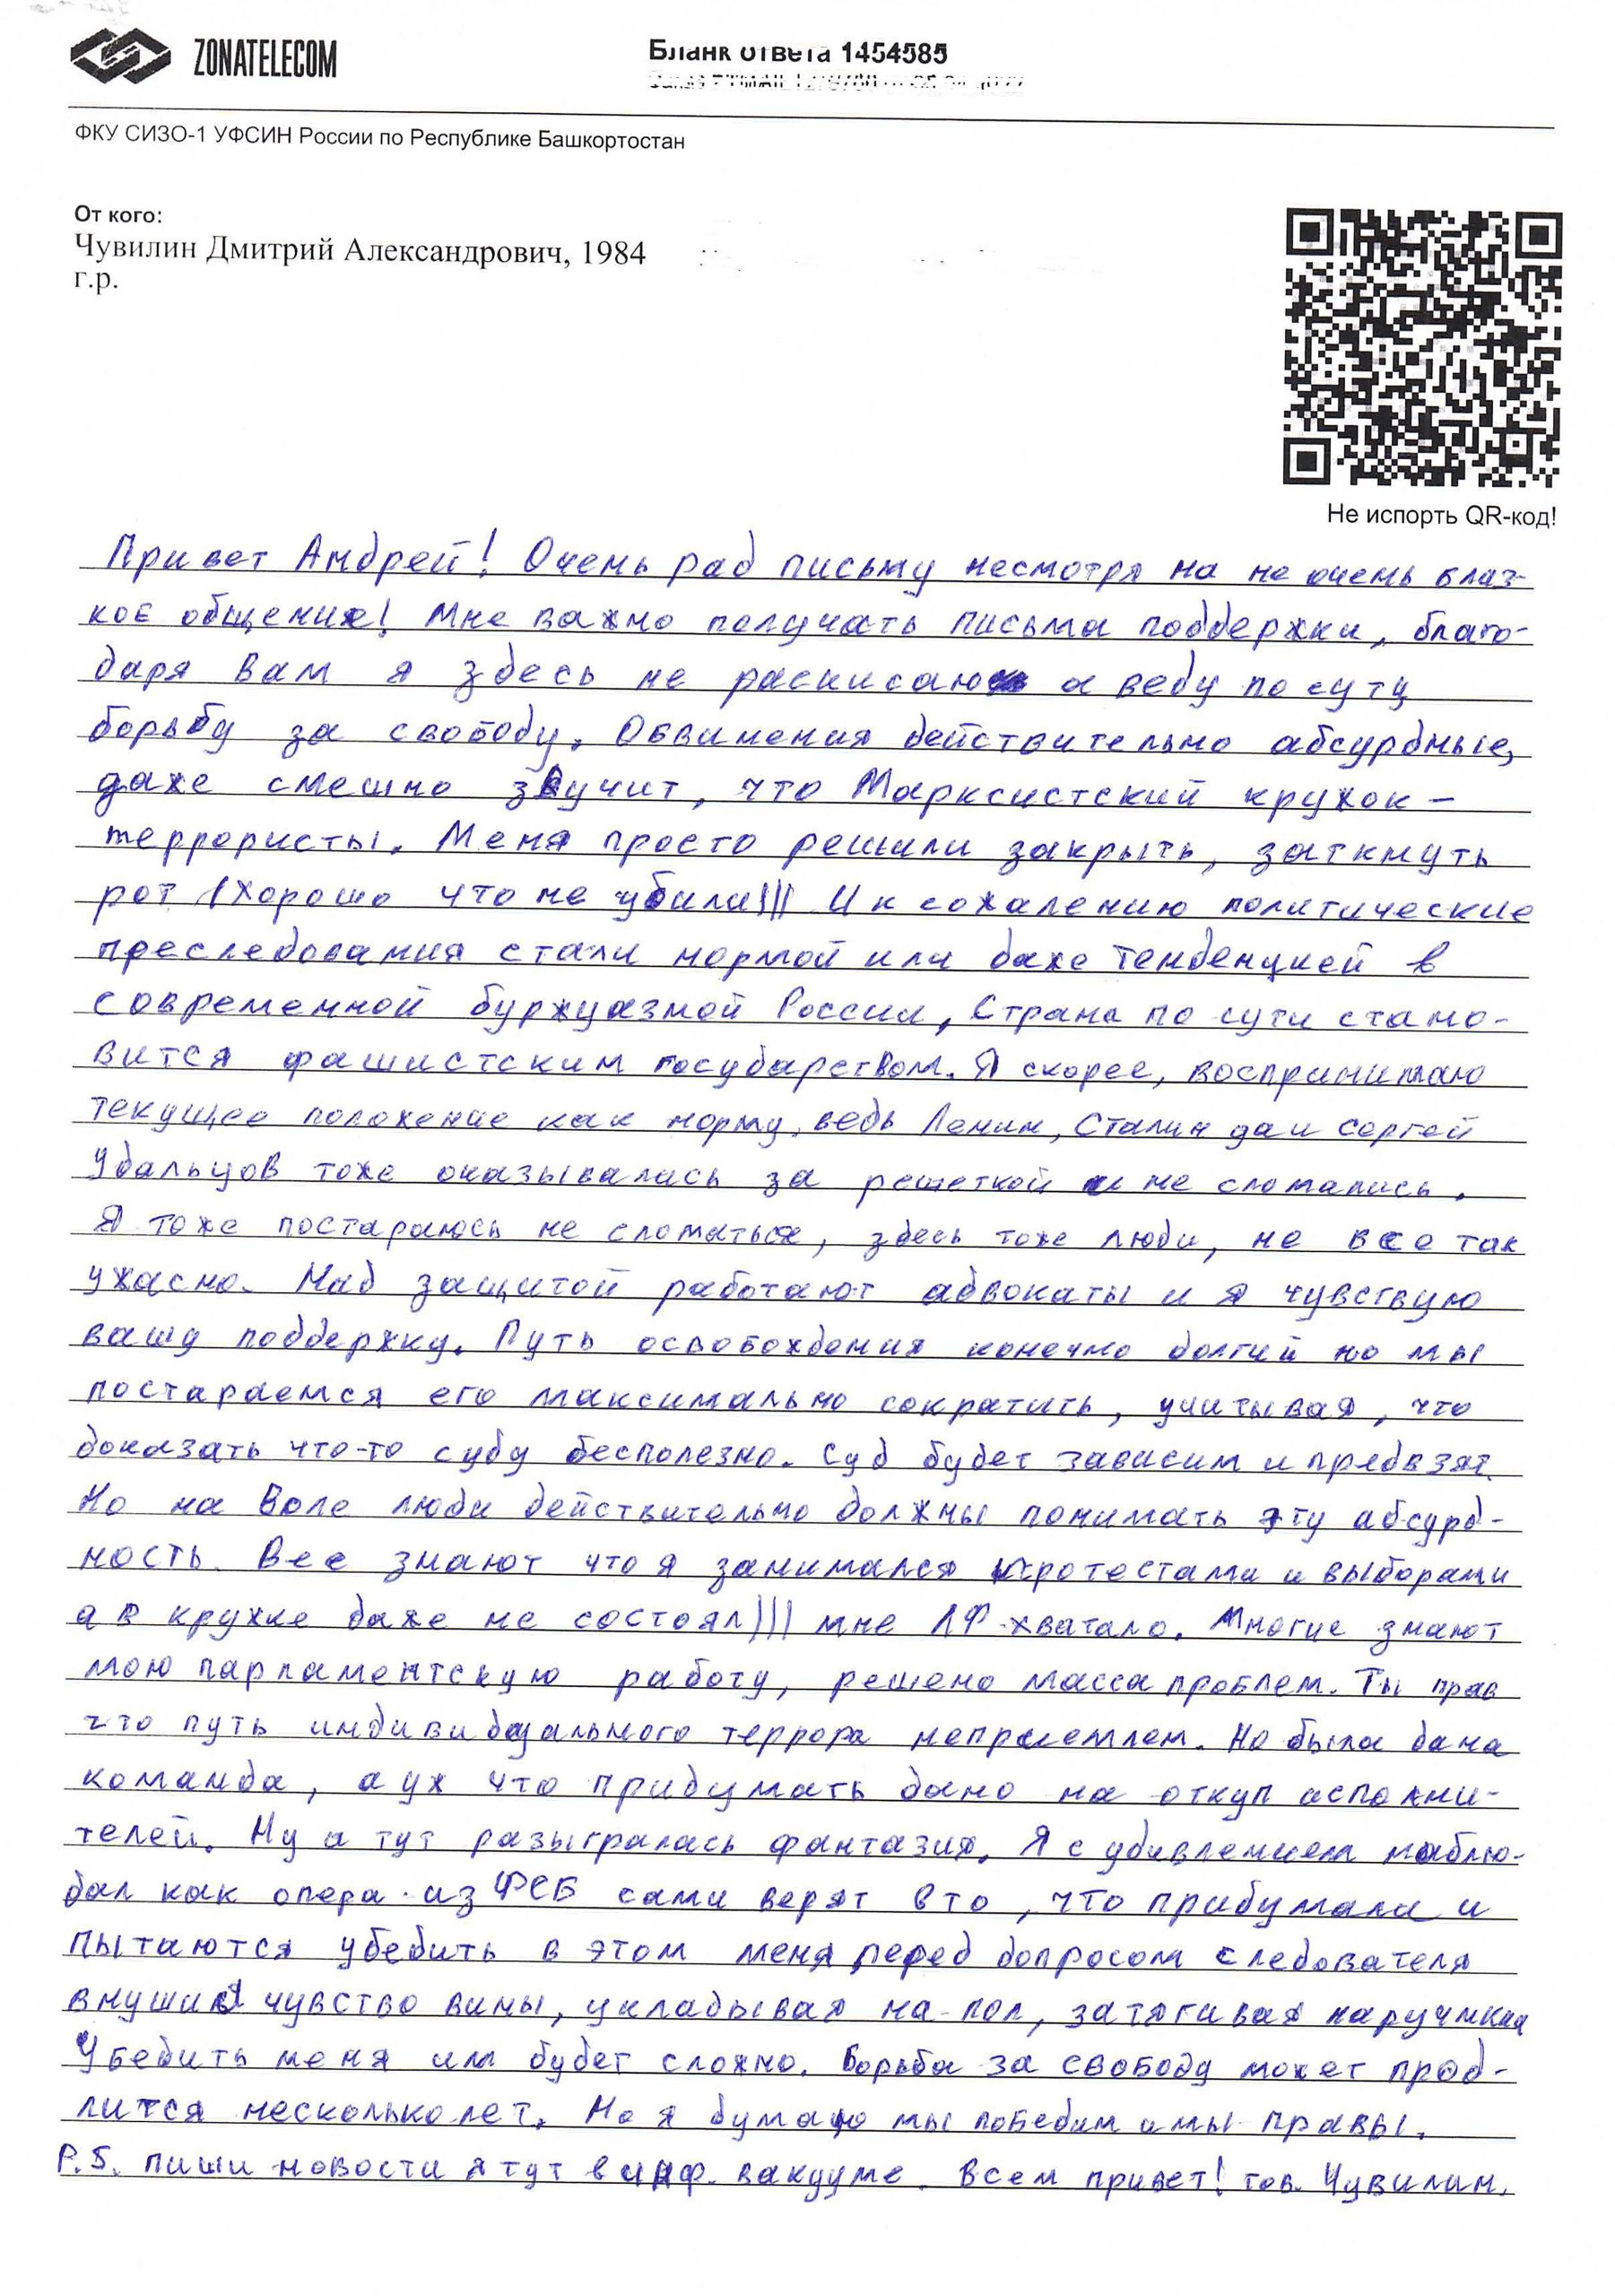 ZONATELECOM
Бланк ответа 1454585
ФКУ СИЗО-1 УФСИН России по Республике Башкортостан
От кого:
Чувилин Дмитрий Александрович, 1984
г.р.
Не испорть QR-код!
Привет Андрей! Очень рад письму несмотря на не очень близ-
кое общение! Мне важно получать письма поддержки, благо-
даря вам я здесь не раскисаю а веду по суту
борьбу за свободу. Обвинения действительно абсурдные,
даже смешно звучит, что Марксистский кружок –
террористы. Меня просто решили закрыть, заткнуть
рот (Хорошо что не убили))) И к сожалению политические
преследования стали нормой или даже тенденцией в
современной буржуазной России, Страна по сути стано-
вится фашистским государством. Я скорее, воспринимаю
текущее положение как норму, ведь Ленин, Сталин да и Сергей
Удальцов тоже оказывались за решеткой и не сломались.
Я тоже постараюсь не сломаться, здесь тоже люди, не все так
ужасно. Над защитой работают адвокаты и я чувствую
вашу поддержку. Путь освобождения конечно долгий но мы
постараемся его максимально сократить, учитывая, что
доказать что-то суду бесполезно. Суд будет зависим и предвзят.
Но на Воле люди действительно должны понимать эту абсурд-
ность. Все знают что я занимался протестами и выборами
а в кружке даже не состоял))) мне ЛФ хватало. Многие знают
мою парламентскую работу, решено масса проблем. Ты прав
что путь индивидуального террора неприемлем. Но была дана
команда, а уж что придумать дано на откуп исполни-
телей. Ну а тут разыгралась фантазия. Я с удивлением наблю-
дал как опера из ФСБ сами верят в то, что придумали и
пытаются убедить в этом меня перед допросом следователя
внушив чувство вины, укладывая на пол, затягивая наручники
Убедить меня им будет сложно. Борьба за свободу может прод-
лится несколько лет. Но я думаю мы победим и мы правы.
P.S. пиши новости я тут в инф. вакууме. Всем привет! тов. Чувилин.